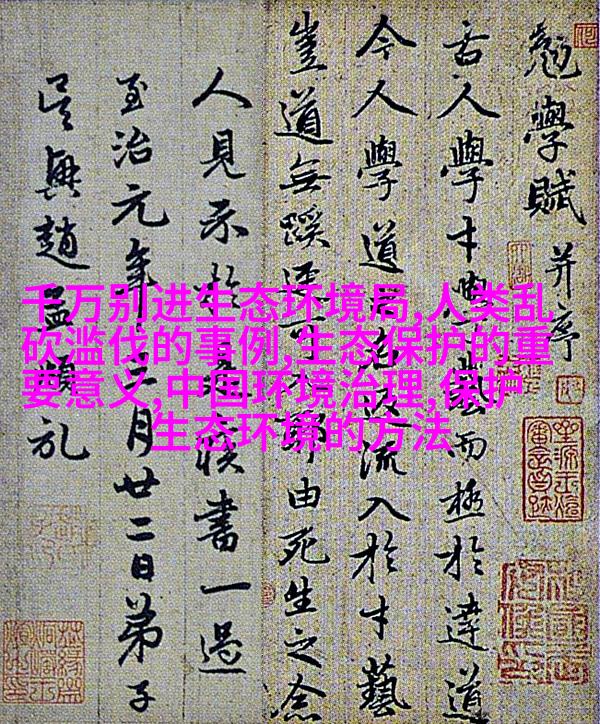 勉學賦并序
古人學才藝而極於達道
今人學道流入於才藝
豈道無蹊可由死生之念
人見示於書一過
至治元年月廿二日弟子
吳興趙孟頫
千万别进生态环境局,人类乱
砍滥伐的事例,生态保护的重
要意义,中国环境治理,保护
生态环境的方法